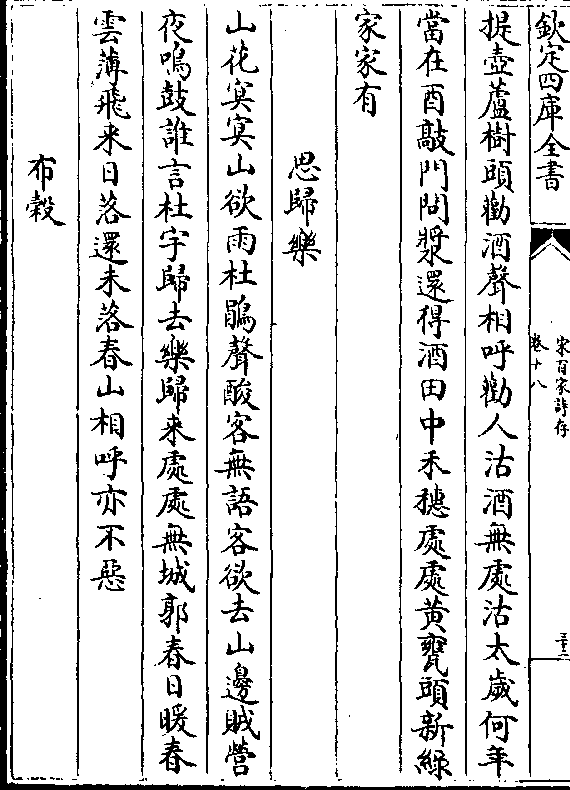 欽定四庫全書
宋百家詩存
卷十八
三十二
提壺蘆樹頭勸酒聲相呼勸人沽酒無處沽太歲何年
當在酉敲門問漿還得酒田中禾穗處處黄甕頭新綠
家家有
思歸樂
山花冥冥山欲雨杜鵑聲酸客無語客欲去山邊賊營
夜鳴鼓誰言杜宇歸去樂歸來處處無城郭春日暖春
雲薄飛来日落還未落春山相呼亦不惡
布穀